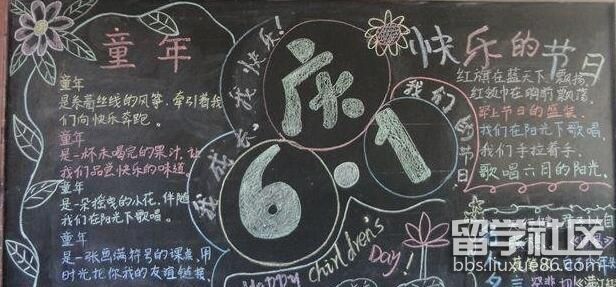 童年
童年
是系着丝线的风筝,牵引着我
们向快乐奔跑。
童年
是一杯未喝完的果汁,让
我们品尝快乐的味道。
童年
是一朵摇曳的小花,伴随
我们在阳光下歌唱。
童年
是一张画满符号的课桌,用
时光把你我的友谊链接。
我成长,我快乐!
庆
6·1
我们的节日
Happy children's
Day!
快乐的节日
红旗在蓝天下飘扬
红领巾在胸前飘荡。
穿上节日的盛装
我们在阳光下歌唱
我们手拉着手、
歌唱六月的阳光。
留学社区
bbs.liuxue86.com